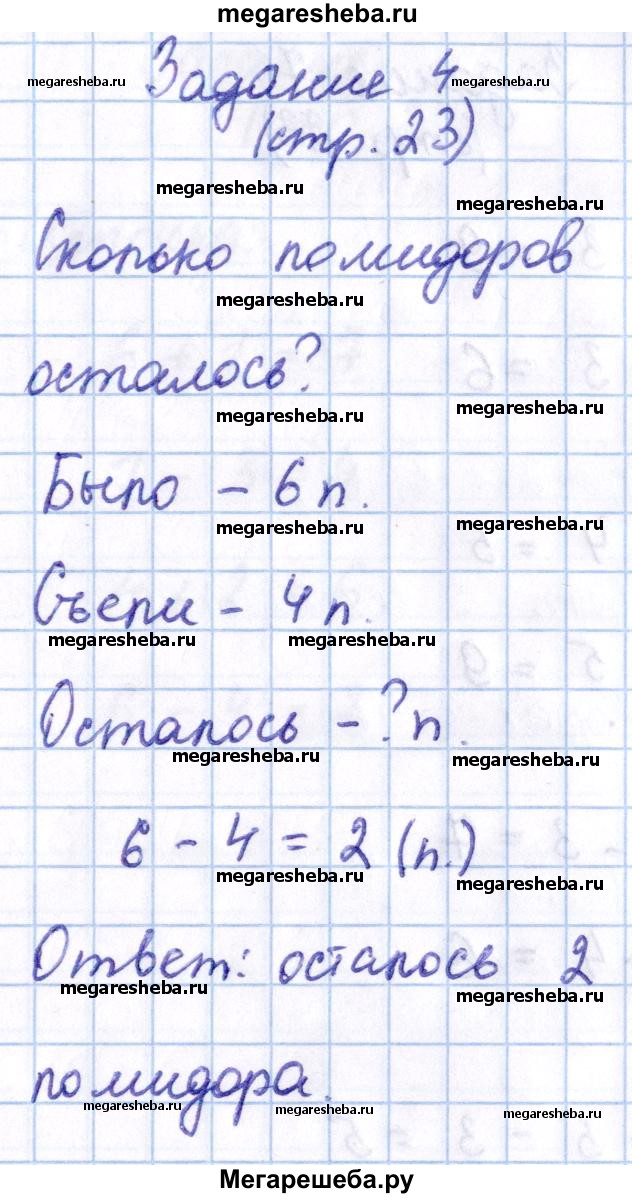 megaresheba.ru
Задание 4
megaresheba.ru megaresheba.ru
(стр. 23)
megaresheba.ru megaresheba.ru
Сколько помидоров
megaresheba.ru
осталось?
megaresheba.ru megaresheba.ru
Было – 6 п.
megaresheba.ru megaresheba.ru
Съели – 4 п.
megaresheba.ru megaresheba.ru
Осталось – ? п.
megaresheba.ru megaresheba.ru
6 – 4 = 2 (п.)
megaresheba.ru megaresheba.ru
Ответ: осталось 2
megaresheba.ru megaresheba.ru
помидора.
megaresheba.ru megaresheba.ru megaresheba.ru
Мегарешеба.ру